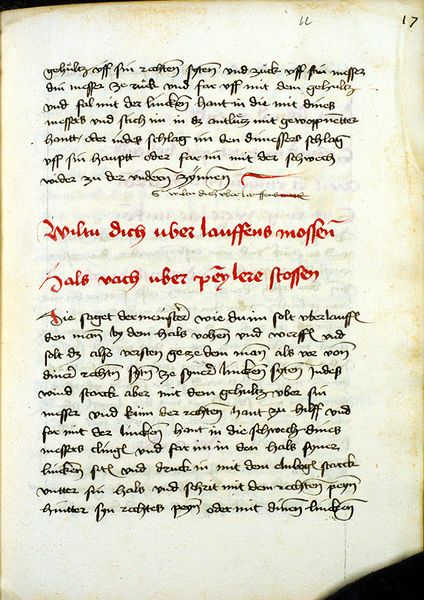 11 17
gehültz vff sin rechten syten vnd zuck vff sin messer
din messer ze ruck vnd far vff mit dem gehultz
vnd fal mit der lincken hant in die mit dines
messers vnd stich im in dz antlutz mit gewopneter
hantt oder indes schlag im den dinessers schlag
vff sin hauptt oder far im mit der schwech
wider zu der vndern zynnen
wiltu dich vber lauffens
Wiltu dich vber lauffens mossen
Hals vach vber peyn lere stossen
Hie saget der meinster wie du im solt vberlauffen
den man by dem hals vohen vnd werffen vnd
solt dz also versten gegen dem man als vor von
diner rechten syten ze syner lincken syten indes
wind starck aber mit dem gehultz vber sin
messer vnd kum der rechten hant zu hilff vnd
far mit der lincken hant in die schwech dines
messers clingen vnd far im in den hals syner
lincken siten vnd druck in mit dem elnbogen starck
vntter sin hals vnd schrit mit dem rechten peyn
hintter syn rechtes peyn oder mit dinen lincken